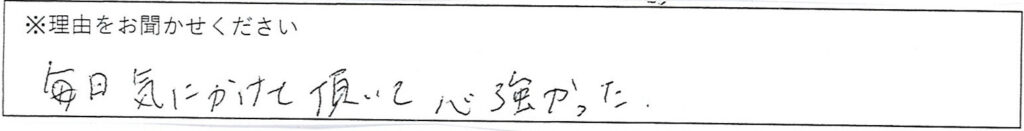 ※理由をお聞かせください
毎日気にかけて頂いて心強かった.